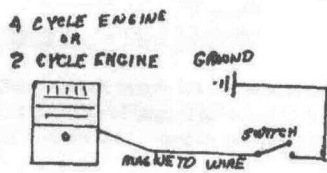 4 CYCLE ENGINE
OR
2 CYCLE ENGINE
GROUND
SWITCH
MAGNETO WIRE